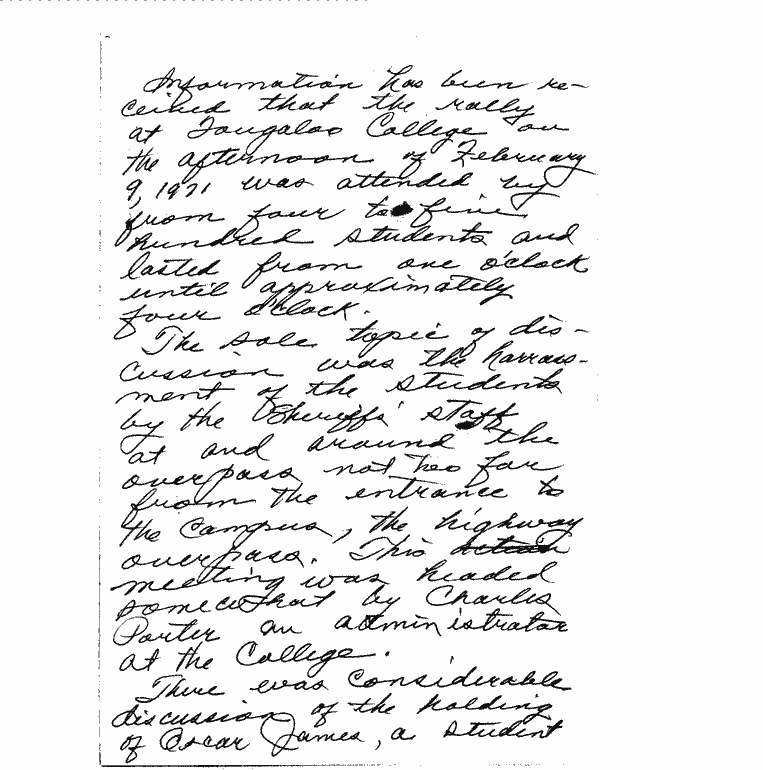 Information has been re-
ceived that the rally
at Tougaloo College on
the afternoon of February
9, 1971 was attended by
from four to five
hundred students and
lasted from one o'clock
until approximately
four o'clock.
The sole topic of dis-
cussion was the harrass-
ment of the students
by the Sheriffs' staff
at and around the
overpass not too far
from the entrance to
the campus, the highway
overpass. This
meeting was headed
somewhat by Charles
Porter an administrator
at the College.
There was considerable
discussion of the holding
of Oscar James, a student